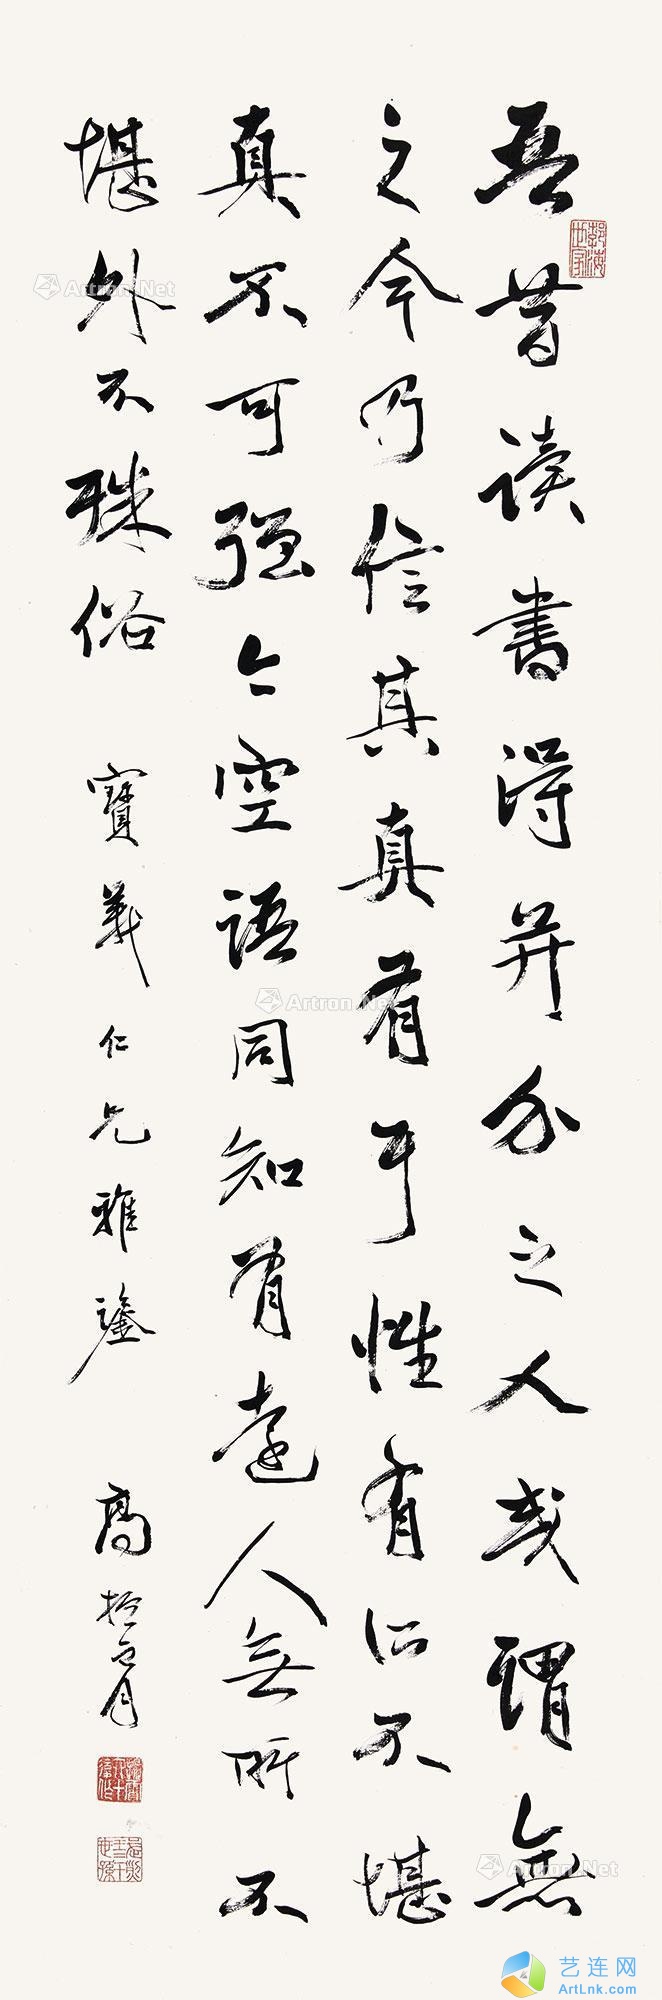 吾昔讀書得并介之人或謂無
之今乃信其真有耳性有所不堪
真不可强今空語同知有達人無所不
堪外不殊俗 寶義仁兄雅鑒 高振霄
Artron.Net
Artron.Net
Artron.Net
艺连网
ArtLnk.com